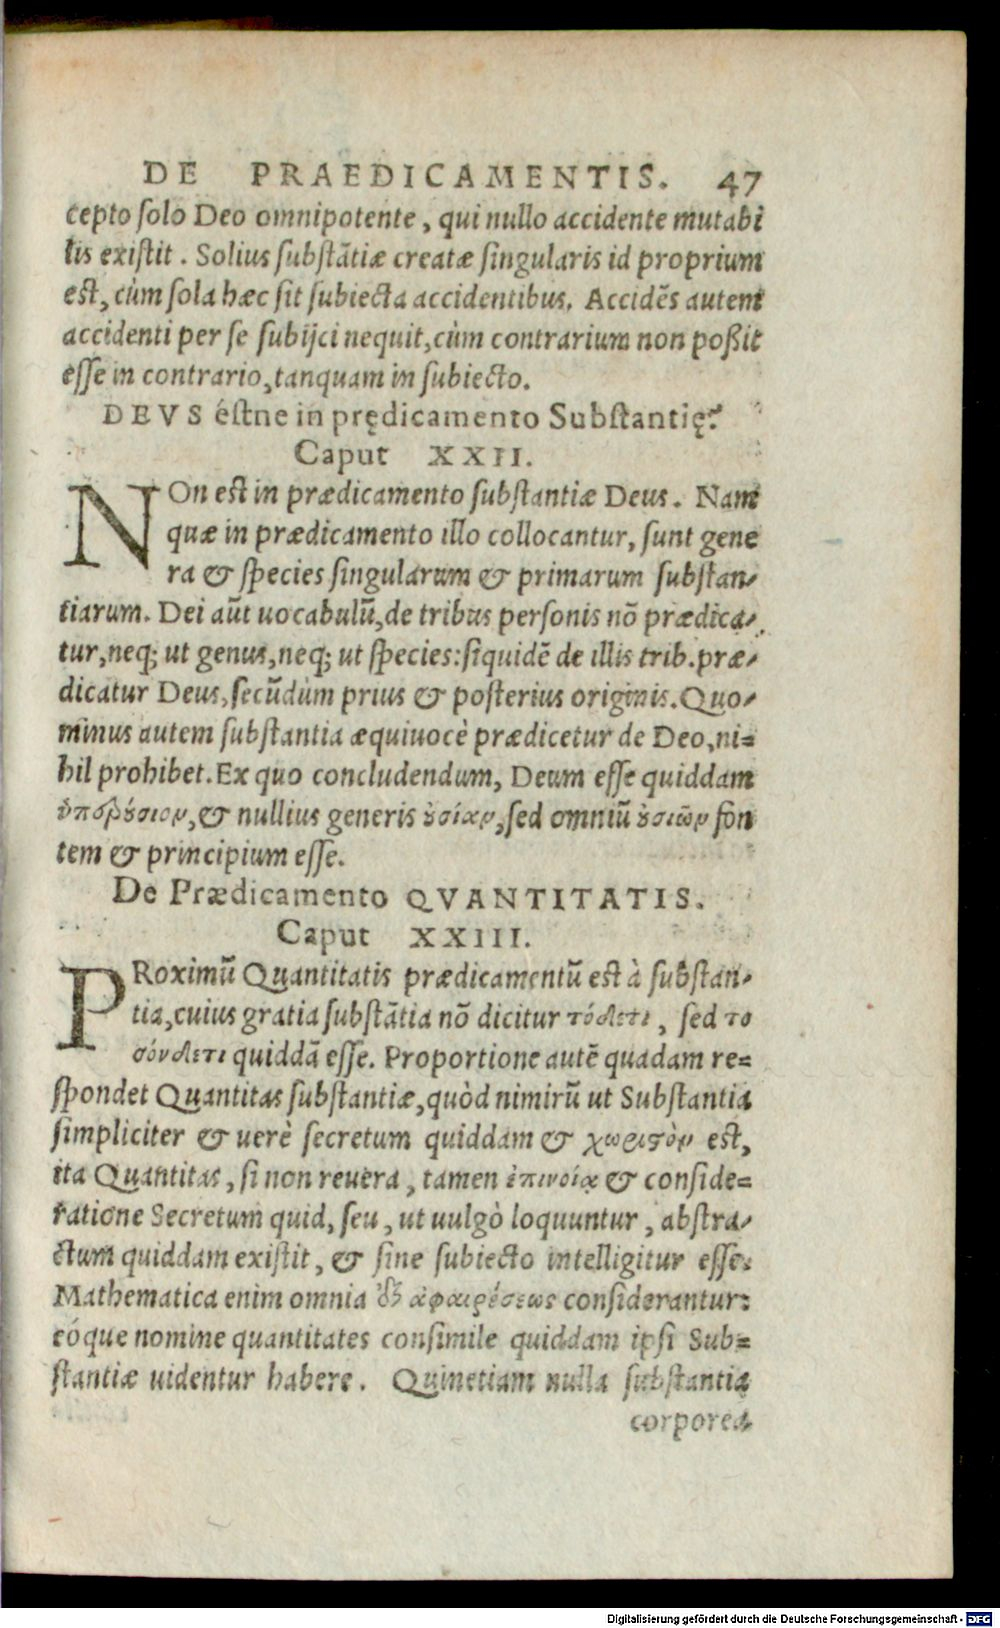 DE PRAEDICAMENTIS. 47
cepto solo Deo omnipotente, qui nullo accidente mutabi
lis existit. Solius substãtiæ creatæ singularis id proprium
est, cùm sola hæc sit subiecta accidentibus. Accidẽs autem
accidenti per se subijci nequit, cùm contrarium non poßit
esse in contrario, tanquam in subiecto.
DEVS éstne in prędicamento Substantię?
Caput XXII.
NOn est in prædicamento substantiæ Deus. Nam
quæ in prædicamento illo collocantur, sunt gene
ra & species singularum & primarum substan-
tiarum. Dei aũt uocabulũ, de tribus personis nõ prædica-
tur, neq; ut genus, neq; ut species: siquidẽ de illis trib. præ-
dicatur Deus, secũdum prius & posterius originis. Quo-
minus autem substantia æquiuocè prædicetur de Deo, ni-
hil prohibet. Ex quo concludendum, Deum esse quiddam
ὑπερούσιον, & nullius generis οὐσίαν, sed omniũ οὐσιῶν fon
tem & principium esse.
De Prædicamento QVANTITATIS.
Caput XXIII.
PRoximũ Quantitatis prædicamentũ est à substan-
tia, cuius gratia substãtia nõ dicitur τόδετι, sed το
σόνδετι quiddã esse. Proportione autẽ quadam re-
spondet Quantitas substantiæ, quòd nimirũ ut Substantia
simpliciter & uerè secretum quiddam & χωριστὸν est,
ita Quantitas, si non reuera, tamen ἐπινοίᾳ & conside-
ratione Secretum quid, seu, ut uulgò loquuntur, abstra-
ctum quiddam existit, & sine subiecto intelligitur esse.
Mathematica enim omnia ἐξ ἀφαιρέσεως considerantur:
eóque nomine quantitates consimile quiddam ipsi Sub-
stantiæ uidentur habere. Quinetiam nulla substantia
corporea
Digitalisierung gefördert durch die Deutsche Forschungsgemeinschaft - DFG